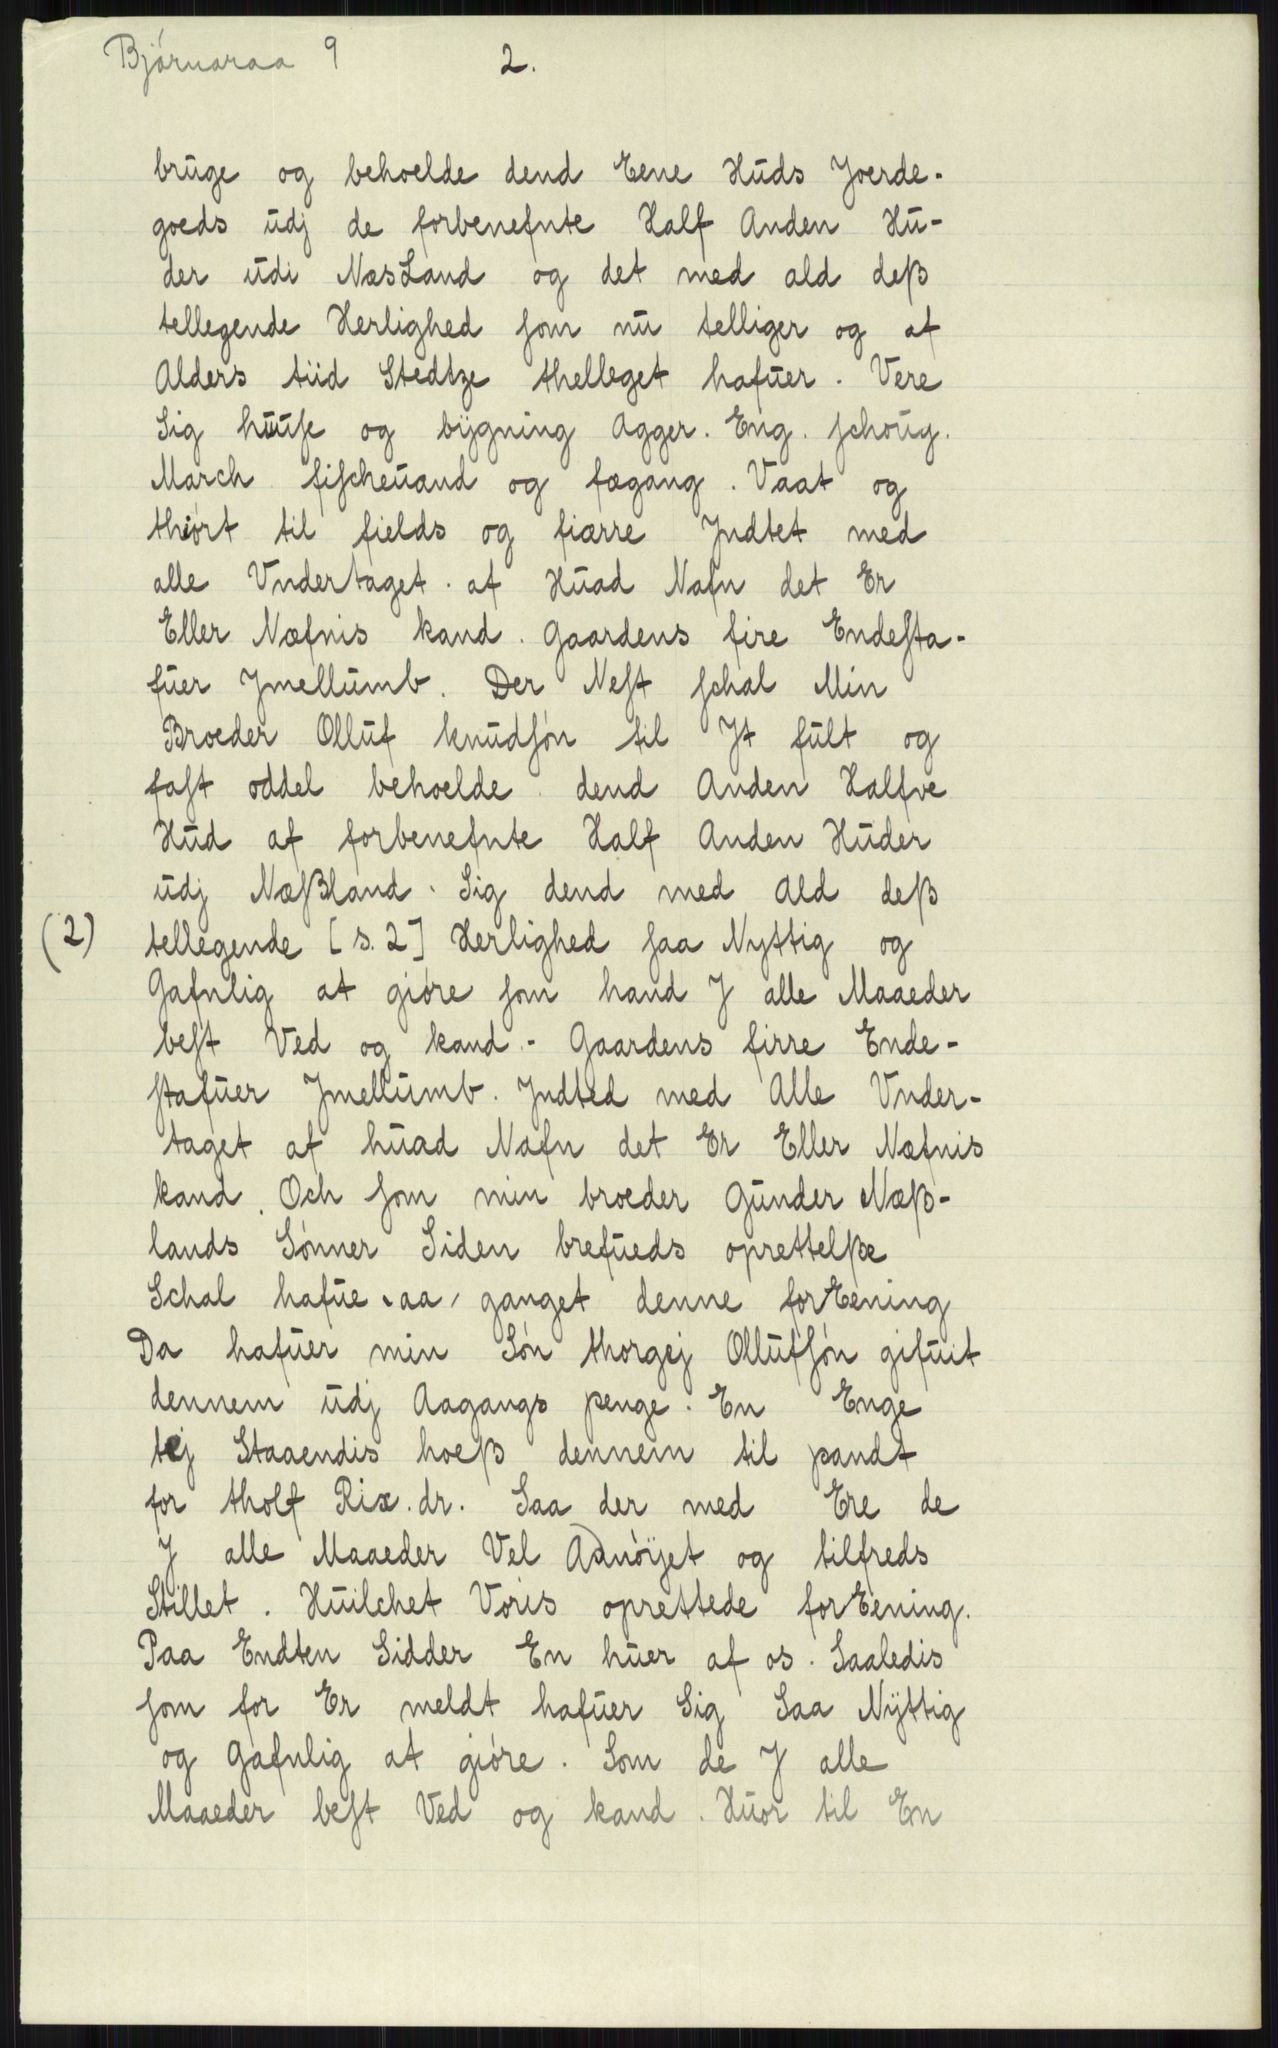 Bjórnaraa 9
2.
bruge og behoelde dend Eene Huds Joerde-
goeds udj de forbenefnte Half Anden Hu-
der udi NæsLand og det med ald deß
tellegende Herlighed som nu telliger og af
Alders tiid Stedtze thelleget hafuer. Vere
Sig huuse og bÿgning Agger. Eng. schoug.
March fischeuand og fægang. Vaat og
thiørt til fields og fiærre Jndtet med
alle Vndertaget. af Huad Nafn det Er
Eller Næfnis kand. Gaardens fire Endesta-
fuer Jmellumb. Der Nest schal Min
Broeder Olluf knudsón til Jt fult og
fast oddel behoelde dend Anden Halfve
Hud af forbenefnte Half Anden Huder
udj Næßland. Sig dend med Ald deß
(2) tellegende [s. 2] Herlighed saa Nyttig og
Gafnlig at gióre som hand J alle Maaeder
best Ved og kand.- Gaardens firre Ende-
stafuer Jmellumb. Jndted med Alle Vnder-
taget af huad Nafn det Er Eller Næfnis
kand. Och som min broeder Gunder Næß-
lands Sónner Siden brefueds oprettelße
Schal hafue aa, ganget denne forEening
Da hafuer min Són thorgej Ollufsón gifuit
dennem udj Aagangs penge. En Enge
tej Staaendis hoeß dennem til pandt
for tholf Rix.dr. Saa der med Ere de
J alle Maaeder Vel Adnóÿet og tilfreds
Stillet. Huilchet Voris oprettede forEening.
Paa Endten Sidder En huer af os. Saaledis
som for Er meldt hafuer Sig Saa Nÿttig
og Gafnlig at gióre. Som de J alle
Maaeder best Ved og kand. Huor til En